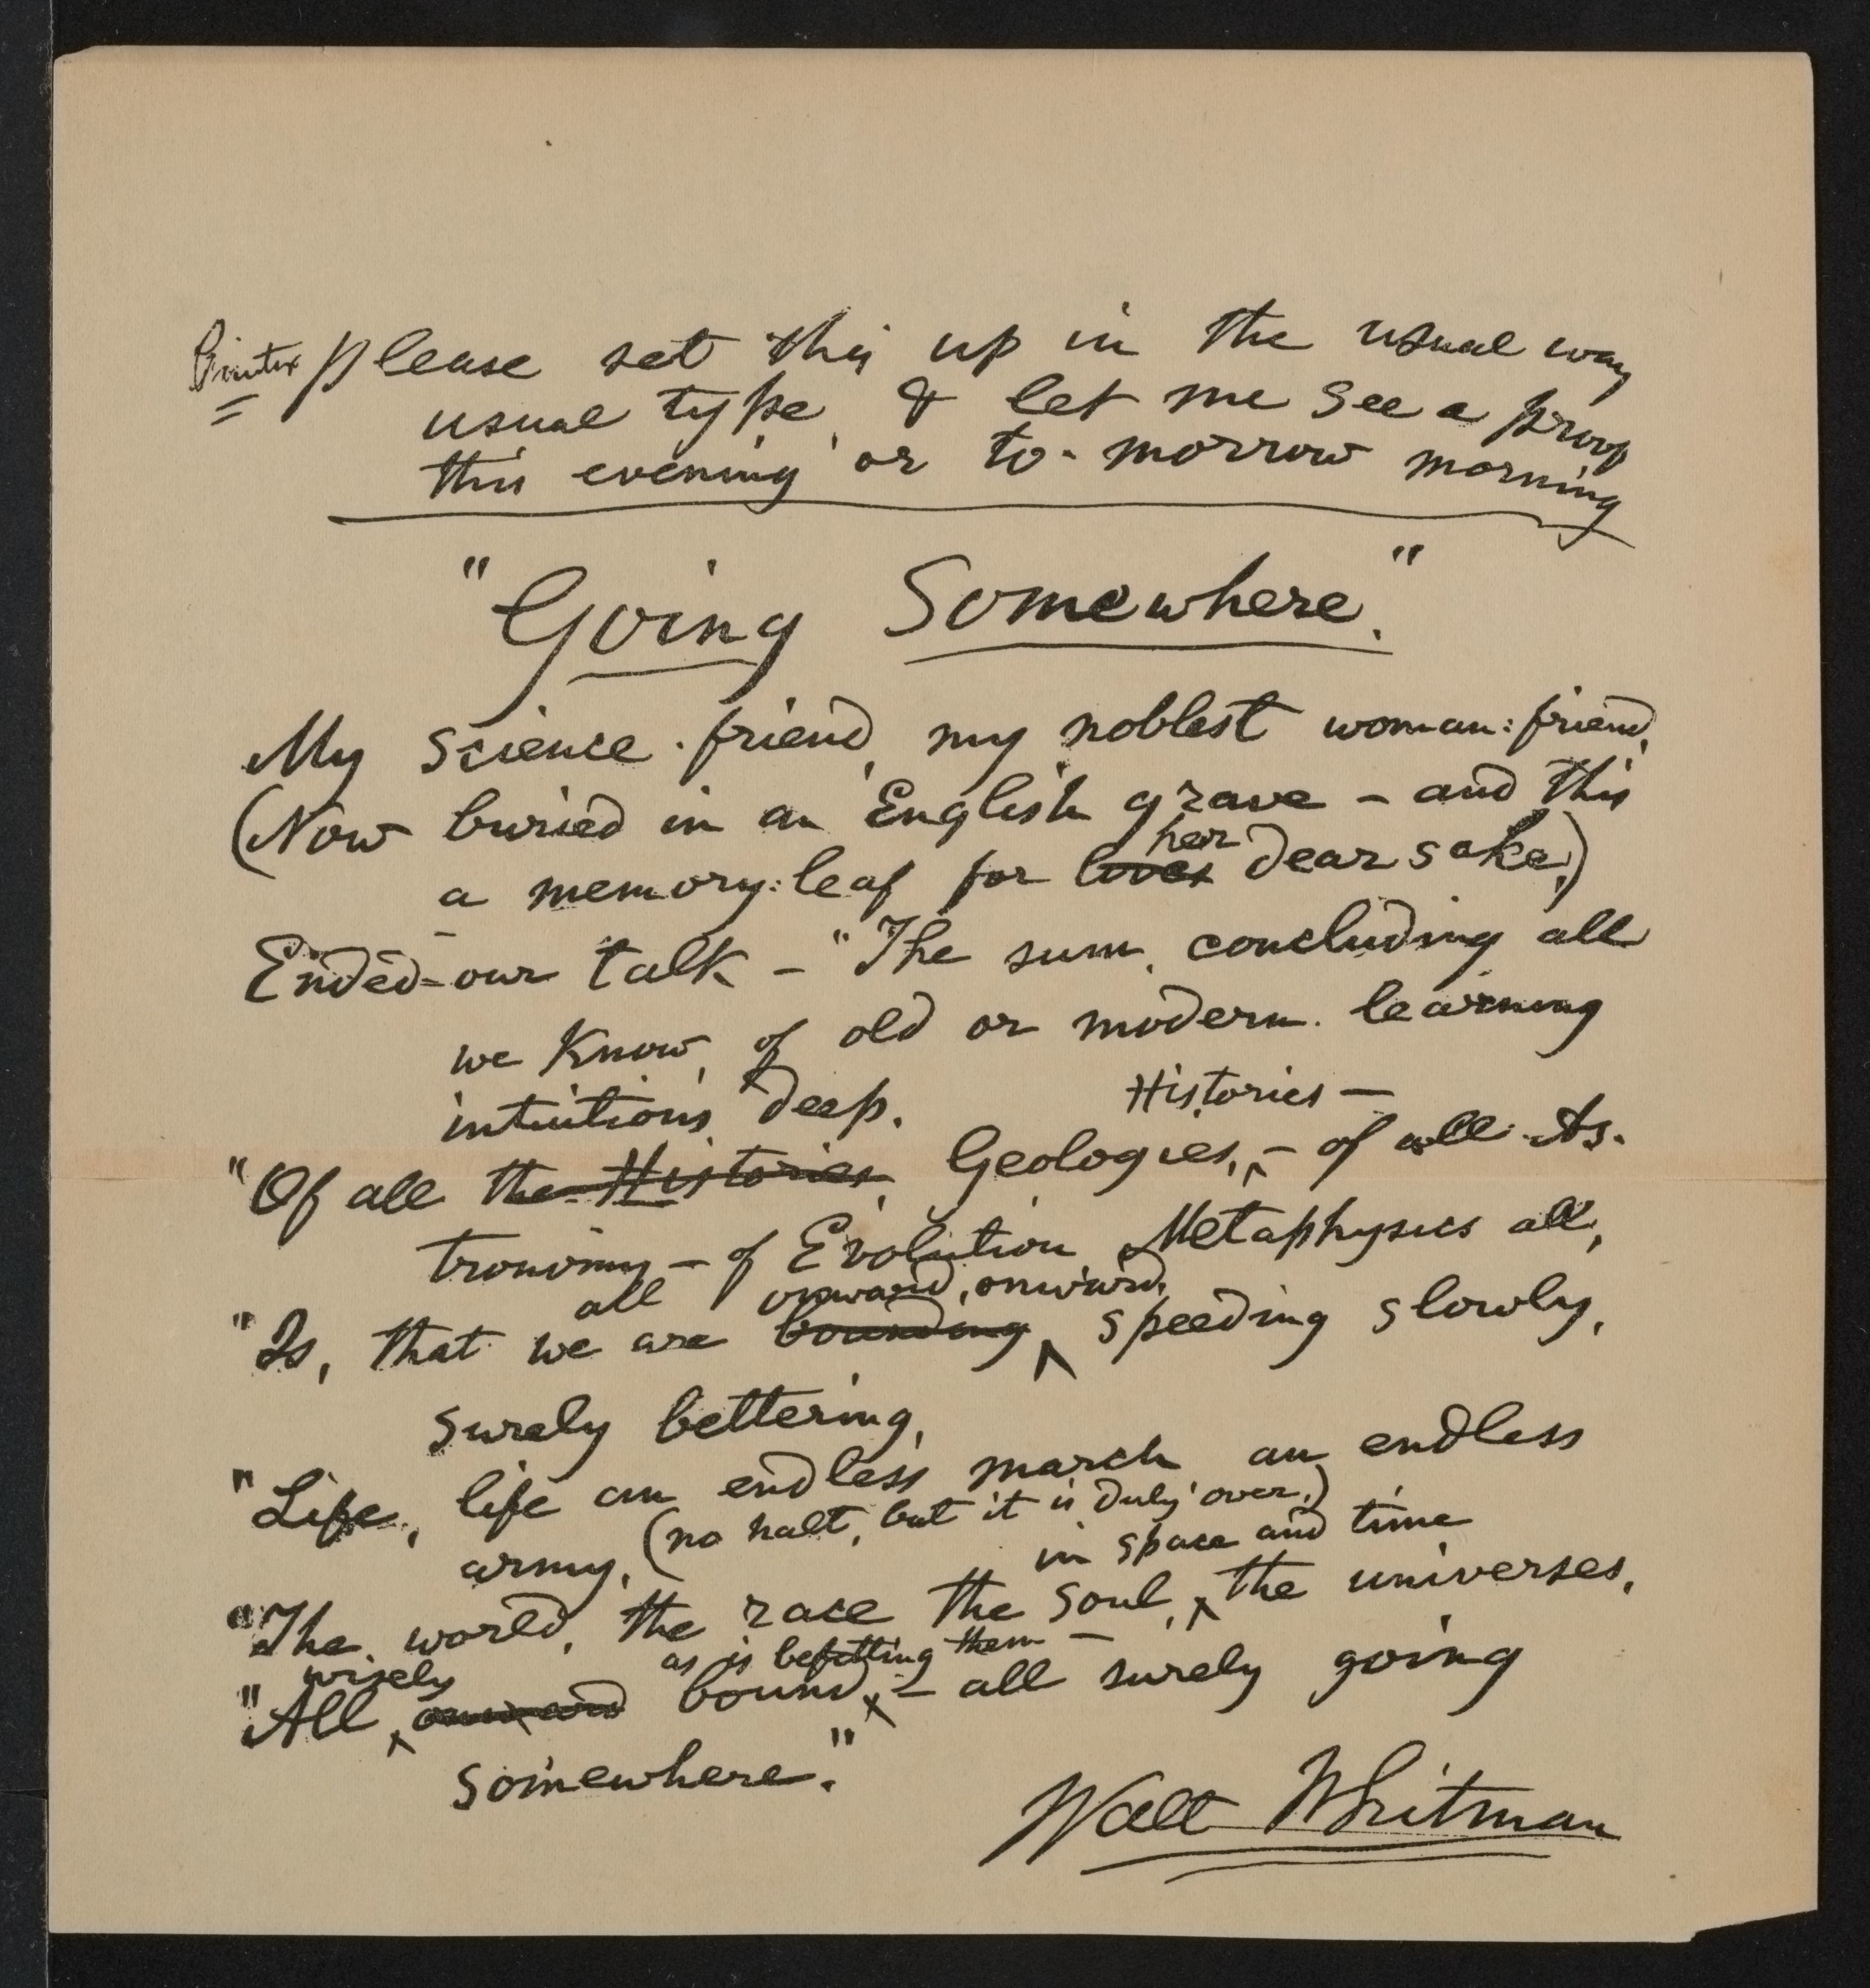 Printer please set this up in the usual way
usual type, & let me see a proof
this evening or to-morrow morning
"Going Somewhere."
My science-friend, my noblest woman-friend,
(Now buried in an English grave – and this
a memory-leaf for loves her dear sake,)
Ended our talk – "The sum, concluding all
we know, of old or modern learning
intuitions deep.
Histories –
"Of all the Histories, Geologies, – of all As-
tronomy – of Evolution, Metaphysics all,
all onward, onward,
"Is, that we are bounding speeding slowly,
surely bettering,
"Life, life an endless march an endless
army, (no halt, but it is duly over,)
in space and time
"The world, the race the soul, the universes,
wisely as is befitting them –
"All onward bound, – all surely going
somewhere."
Walt Whitman